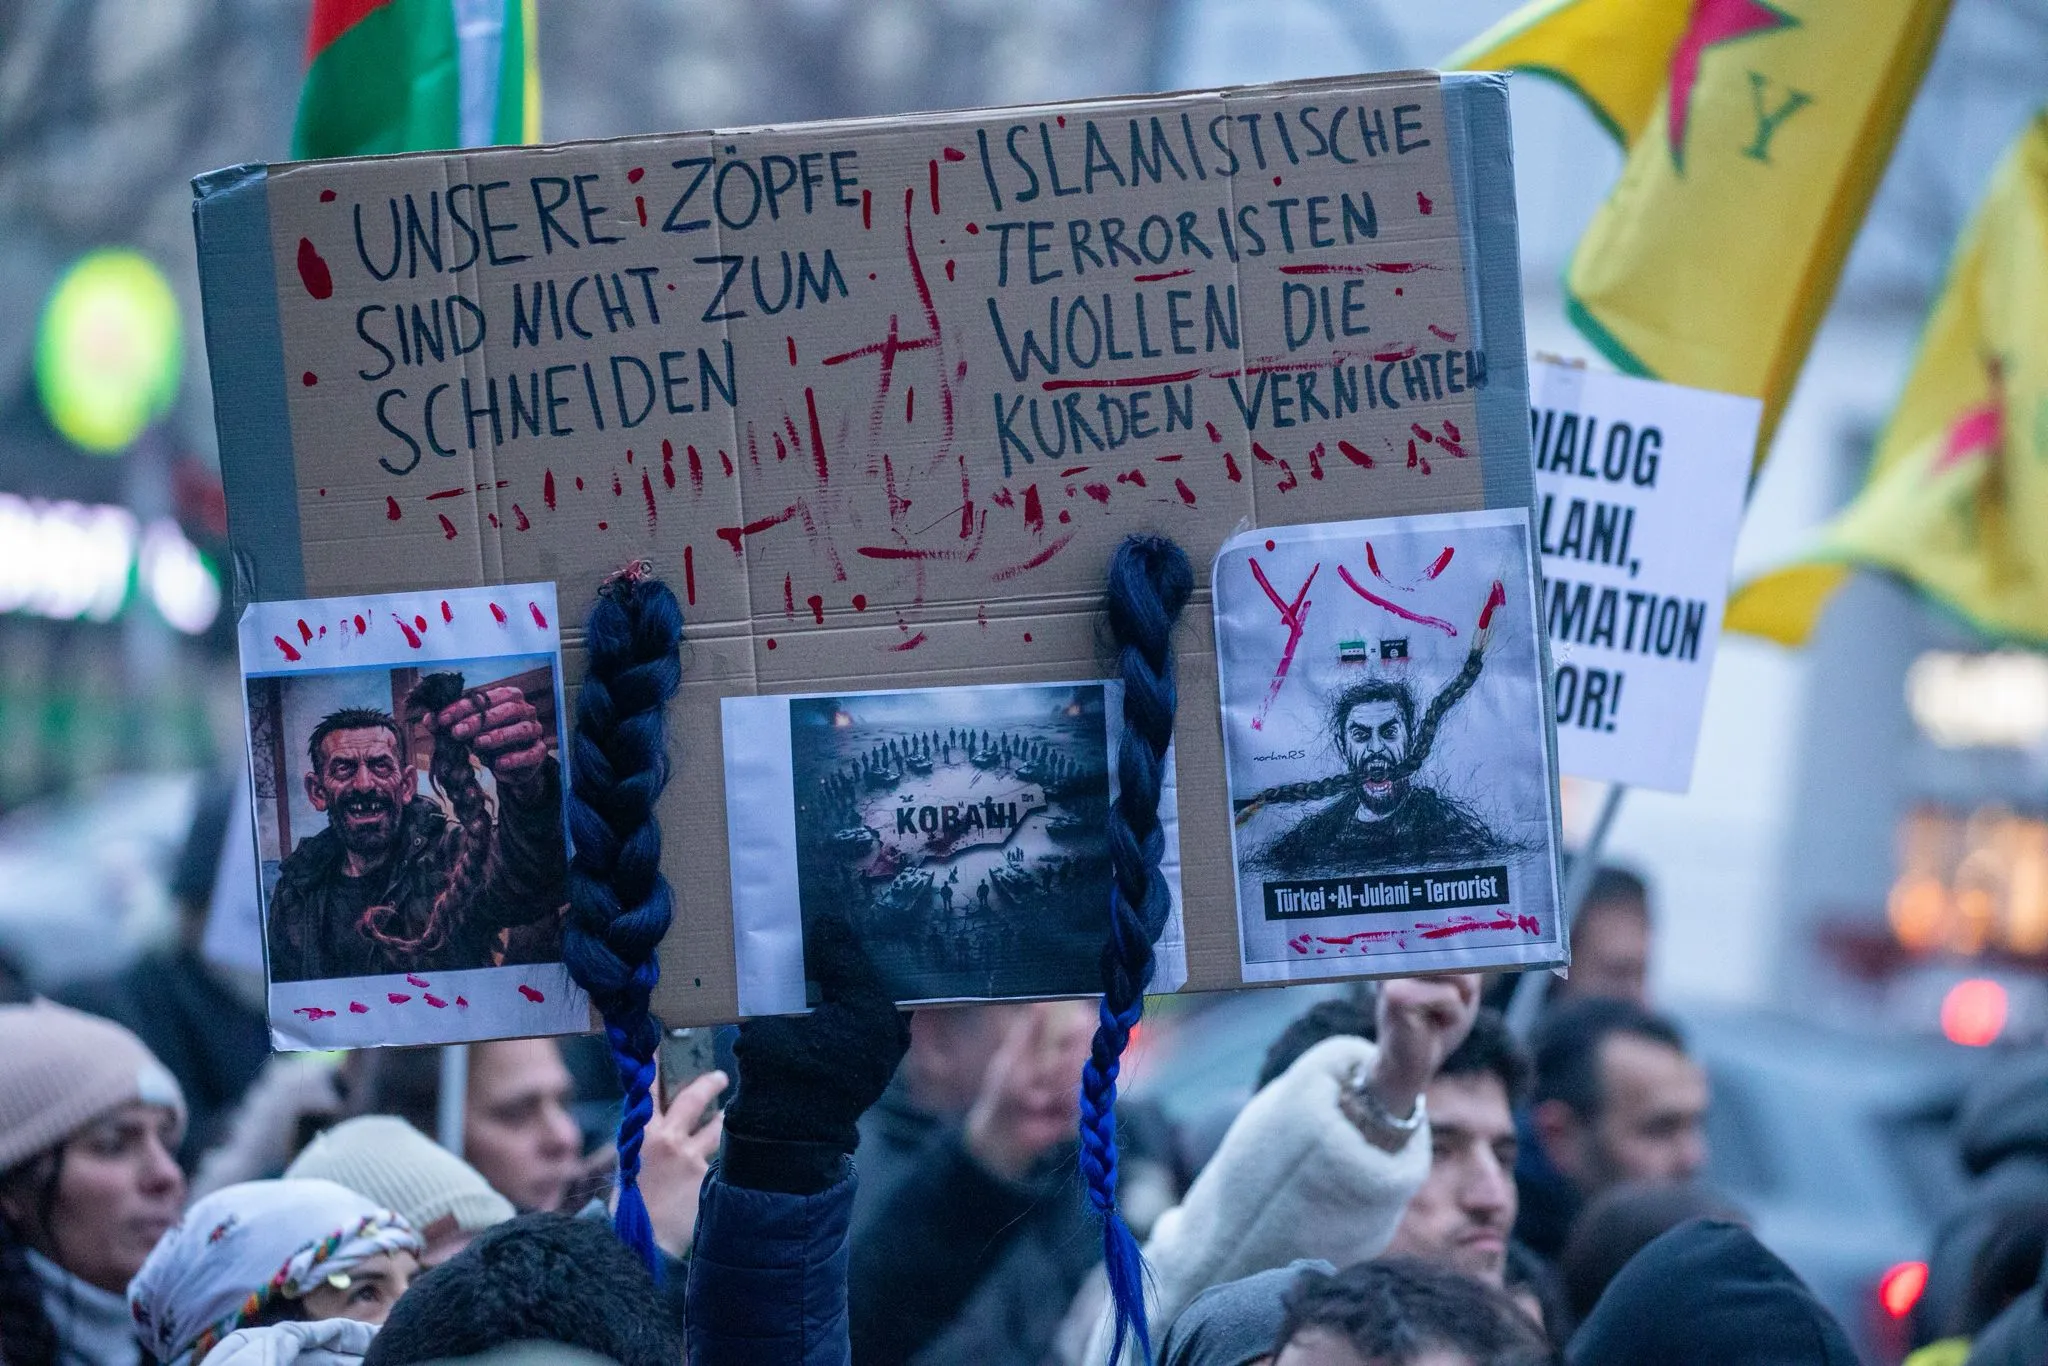 UNSERE ZÖPFE
SIND NICHT ZUM
SCHNEIDEN
ISLAMISTISCHE
TERRORISTEN
WOLLEN DIE
KURDEN VERNICHTEN
KOBANI
norhinRS
Türkei +Al-Julani = Terrorist
Y
DIALOG
LANI,
IMATION
OR!